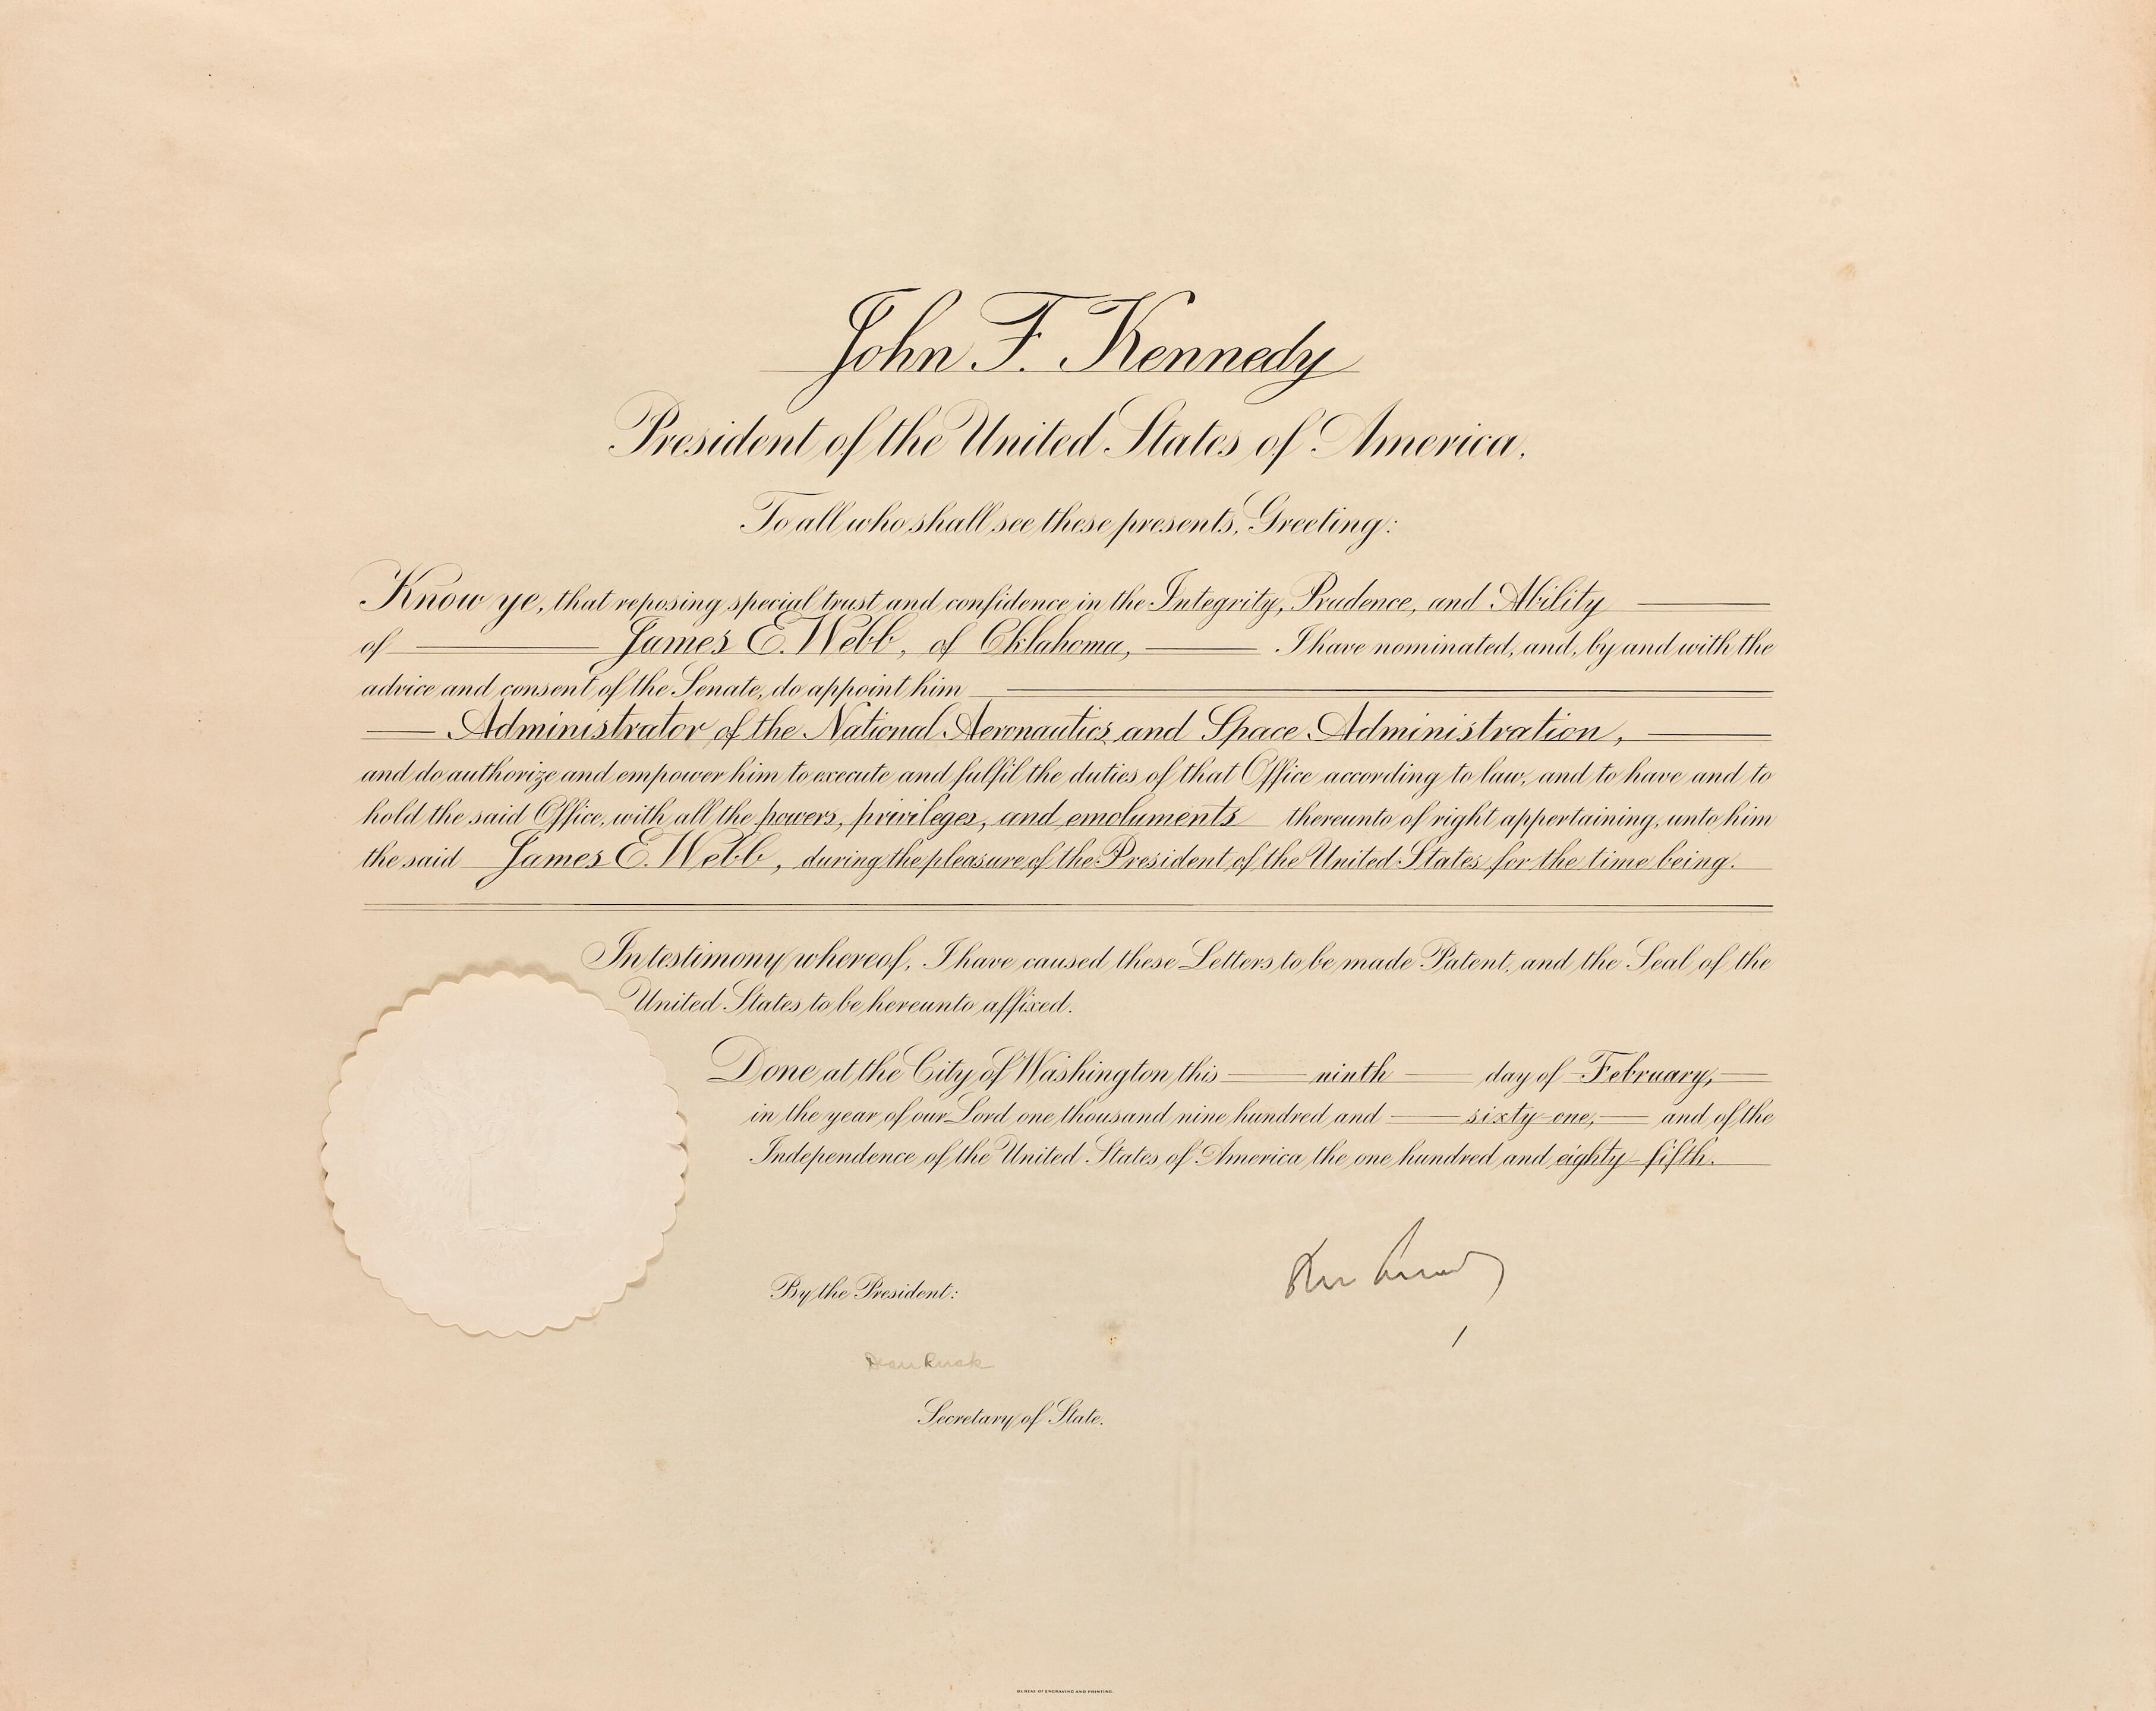 John F. Kennedy
President of the United States of America,
To all who shall see these presents, Greeting:
Know ye, that reposing special trust and confidence in the Integrity, Prudence, and Ability
of James E. Webb, of Oklahoma, I have nominated, and, by and with the
advice and consent of the Senate, do appoint him
Administrator of the National Aeronautics and Space Administration,
and do authorize and empower him to execute and fulfil the duties of that Office according to law, and to have and to
hold the said Office, with all the powers, privileges, and emoluments thereunto of right appertaining, unto him
the said James E. Webb, during the pleasure of the President of the United States for the time being.
In testimony whereof, I have caused these Letters to be made Patent, and the Seal of the
United States to be hereunto affixed.
Done at the City of Washington this ninth day of February,
in the year of our Lord one thousand nine hundred and sixty-one, and of the
Independence of the United States of America the one hundred and eighty-fifth.
By the President:
Dean Rusk
Secretary of State.
BUREAU OF ENGRAVING AND PRINTING.